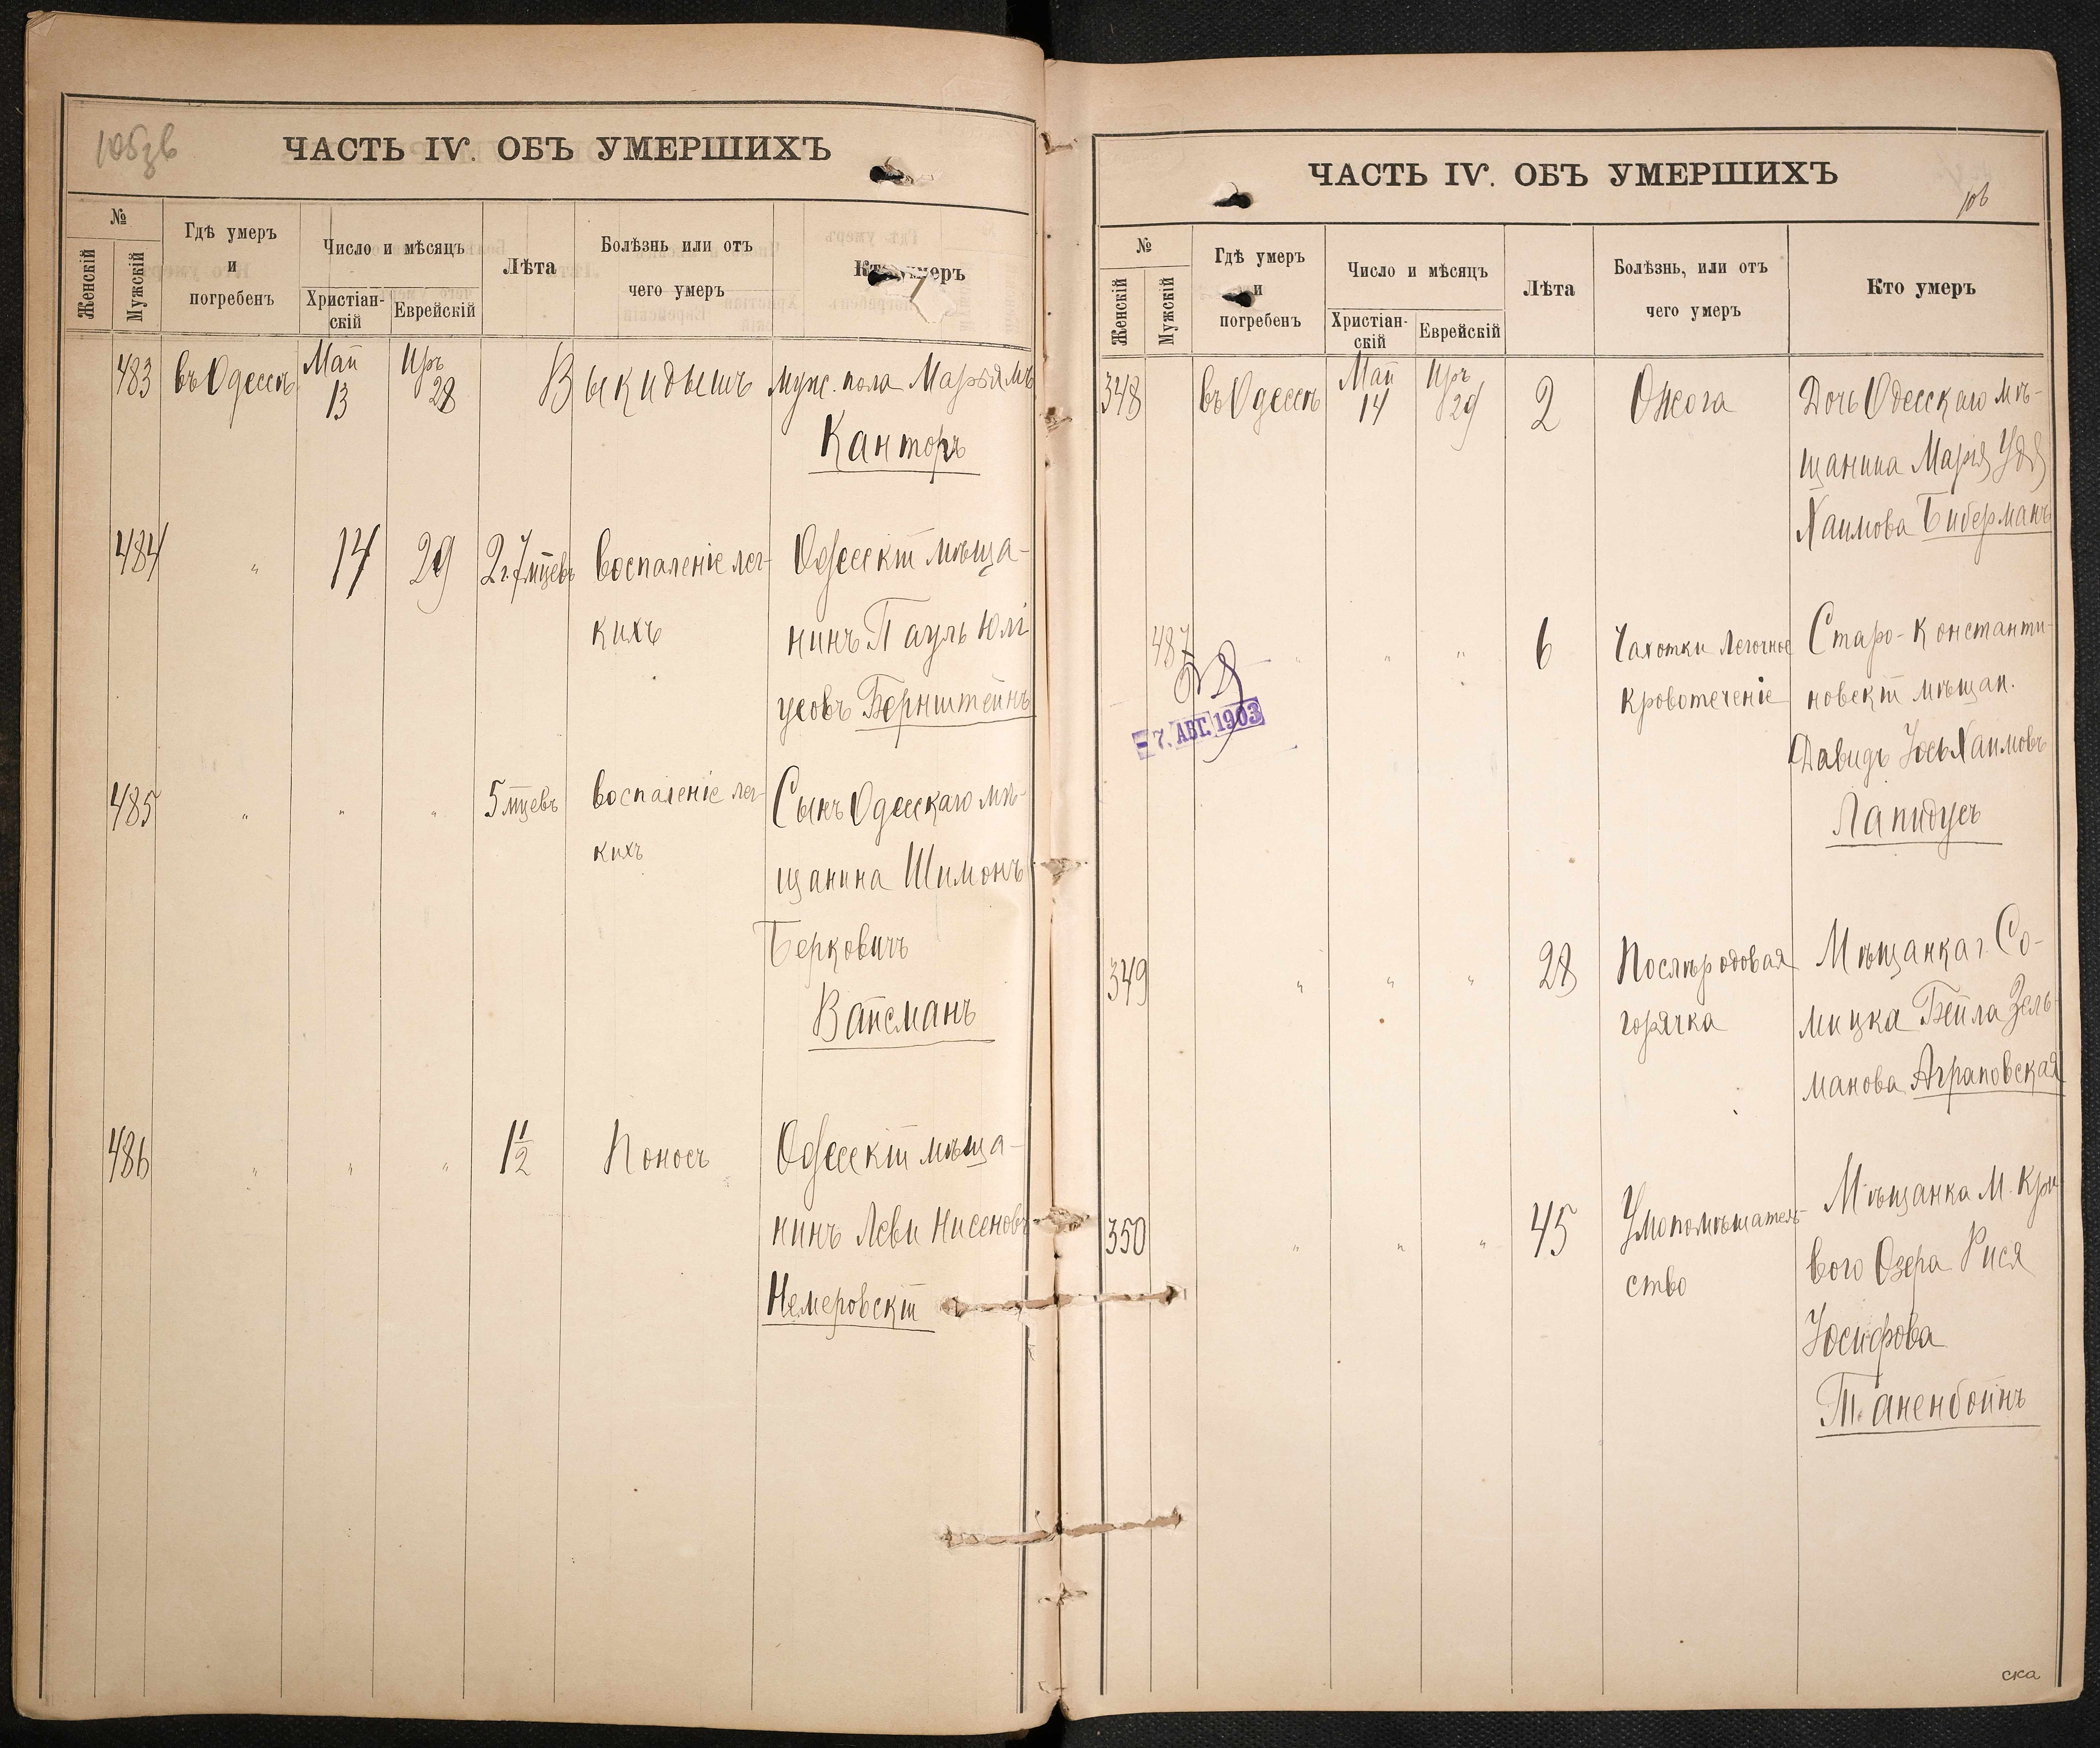 105 зв
ЧАСТЬ IV. ОБЪ УМЕРШИХЪ
№
Женскій
Мужскій
Гдѣ умеръ
и
погребенъ
Число и мѣсяцъ
Христіан-
скій
Еврейскій
Лѣта
Болѣзнь или отъ
чего умеръ
Кто умеръ
483 въ Одессѣ Май 13 Иръ 28 Выкидышъ муж. пола Марьямъ
Канторъ
484 " 14 29 2 г. 7 мцевъ воспаленіе лег- Одесскій мѣща-
кихъ нинъ Пауль Юлі
усовъ Бернштейнъ
485 " " " 5 мцевъ воспаленіе лег- Сынъ Одесскаго мѣ-
кихъ щанина Шимонъ
Берковичъ
Вайсманъ
486 " " " 1 1/2 Поносъ Одесскій мѣща-
нинъ Леви Нисеновъ
Немеровскій
ЧАСТЬ IV. ОБЪ УМЕРШИХЪ
106
№
Женскій
Мужскій
Гдѣ умеръ
и
погребенъ
Число и мѣсяцъ
Христіан-
скій
Еврейскій
Лѣта
Болѣзнь, или отъ
чего умеръ
Кто умеръ
348 въ Одессѣ Май 14 Иръ 29 2 Ожога Дочь Одесскаго мѣ-
щанина Марія Удя
Хаимова Биберманъ
487 " " " 6 Чахотки Легочное Старо-Константи-
кровотеченіе новскій мѣщан.
Давидъ Іось Хаимовъ
Лапидусъ
7. АВГ. 1903
349 " " " 28 Послѣродовая Мѣщанка г. Со-
горячка мицка Бейла Зель-
манова Аграновская
350 " " " 45 Умопомѣшатель- Мѣщанка М. Кри
ство вого Озера Рися
Іосифова
Таненбоймъ
ска